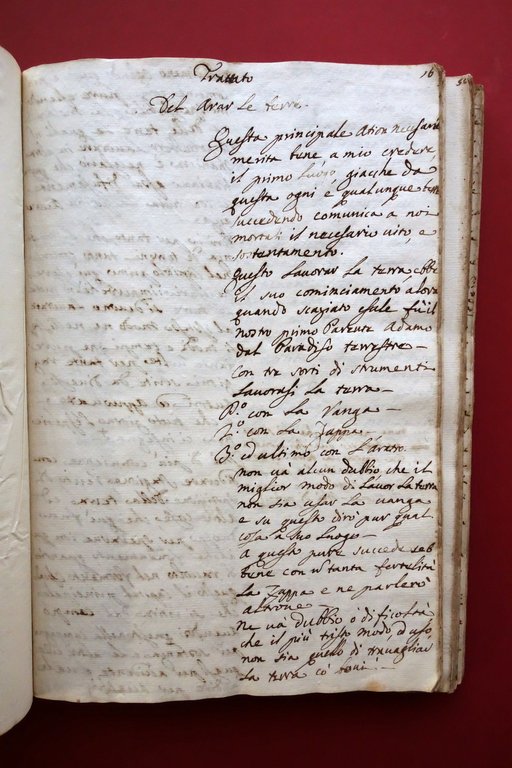 Trattato
16
Del Arar Le terre.
Questa principale Ation necesaria
merita tene, a mio credere,
il primo Luogo, giacche da
questa ogni e qualunque
succedendo comunica a noi
mortali il necesario vito, e
sostentamento.
Questo Lavorar La terra, ebbe
il suo cominciamento alora
quando scaciato esule fù il
nostro primo Parente Adamo
dal Paradiso terrestre –
con tre sorti di strumenti
Lavorasi La terra –
P.º con La Vanga –
2.º con La Zappa –
3.º ed ultimo con L'arato.
non và alcun dubbio che il
miglior modo di Lavor La terra
non sia usar La vanga
e su questo dirò pur qual
cosa à suo Luogo –
A questa pure succede seb
bene con tanta fertelità
La Zappa e ne parlerò
altrove –
ne va dubbio ò dificoltà
che il più tristo modo, ed uso,
non sia quello di travagliar
La terra có boui. –